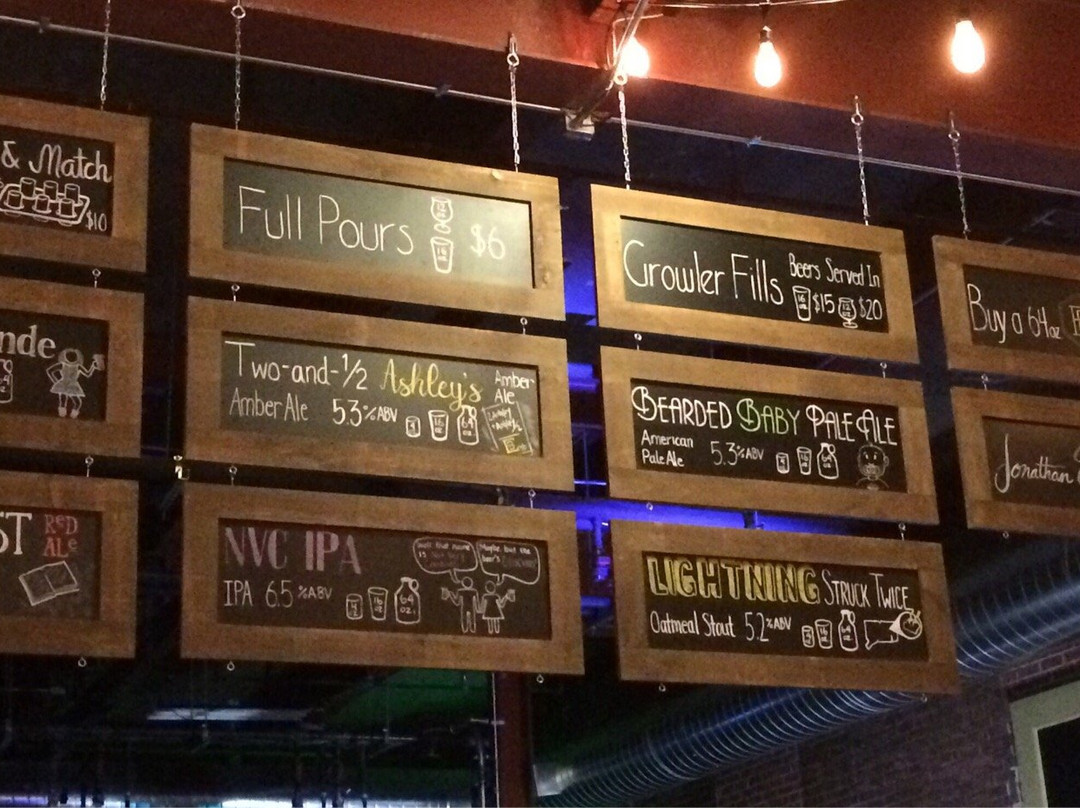 & Match
$10
Full Pours
12 oz
16 oz
$6
Growler Fills
Beers Served In
16 oz $15 12 oz $20
Buy a 64oz
nde
Two-and-½ Ashley's
Amber Ale 5.3%ABV
16 oz 64 oz
Amber-
Ale
BEARDED BABY PALE ALE
American
Pale Ale 5.3%ABV
Jonathan
ST RED
ALE
NVC IPA
IPA 6.5%ABV
64 oz.
Maybe, but the
LIGHTNING STRUCK TWICE
Oatmeal Stout 5.2%ABV